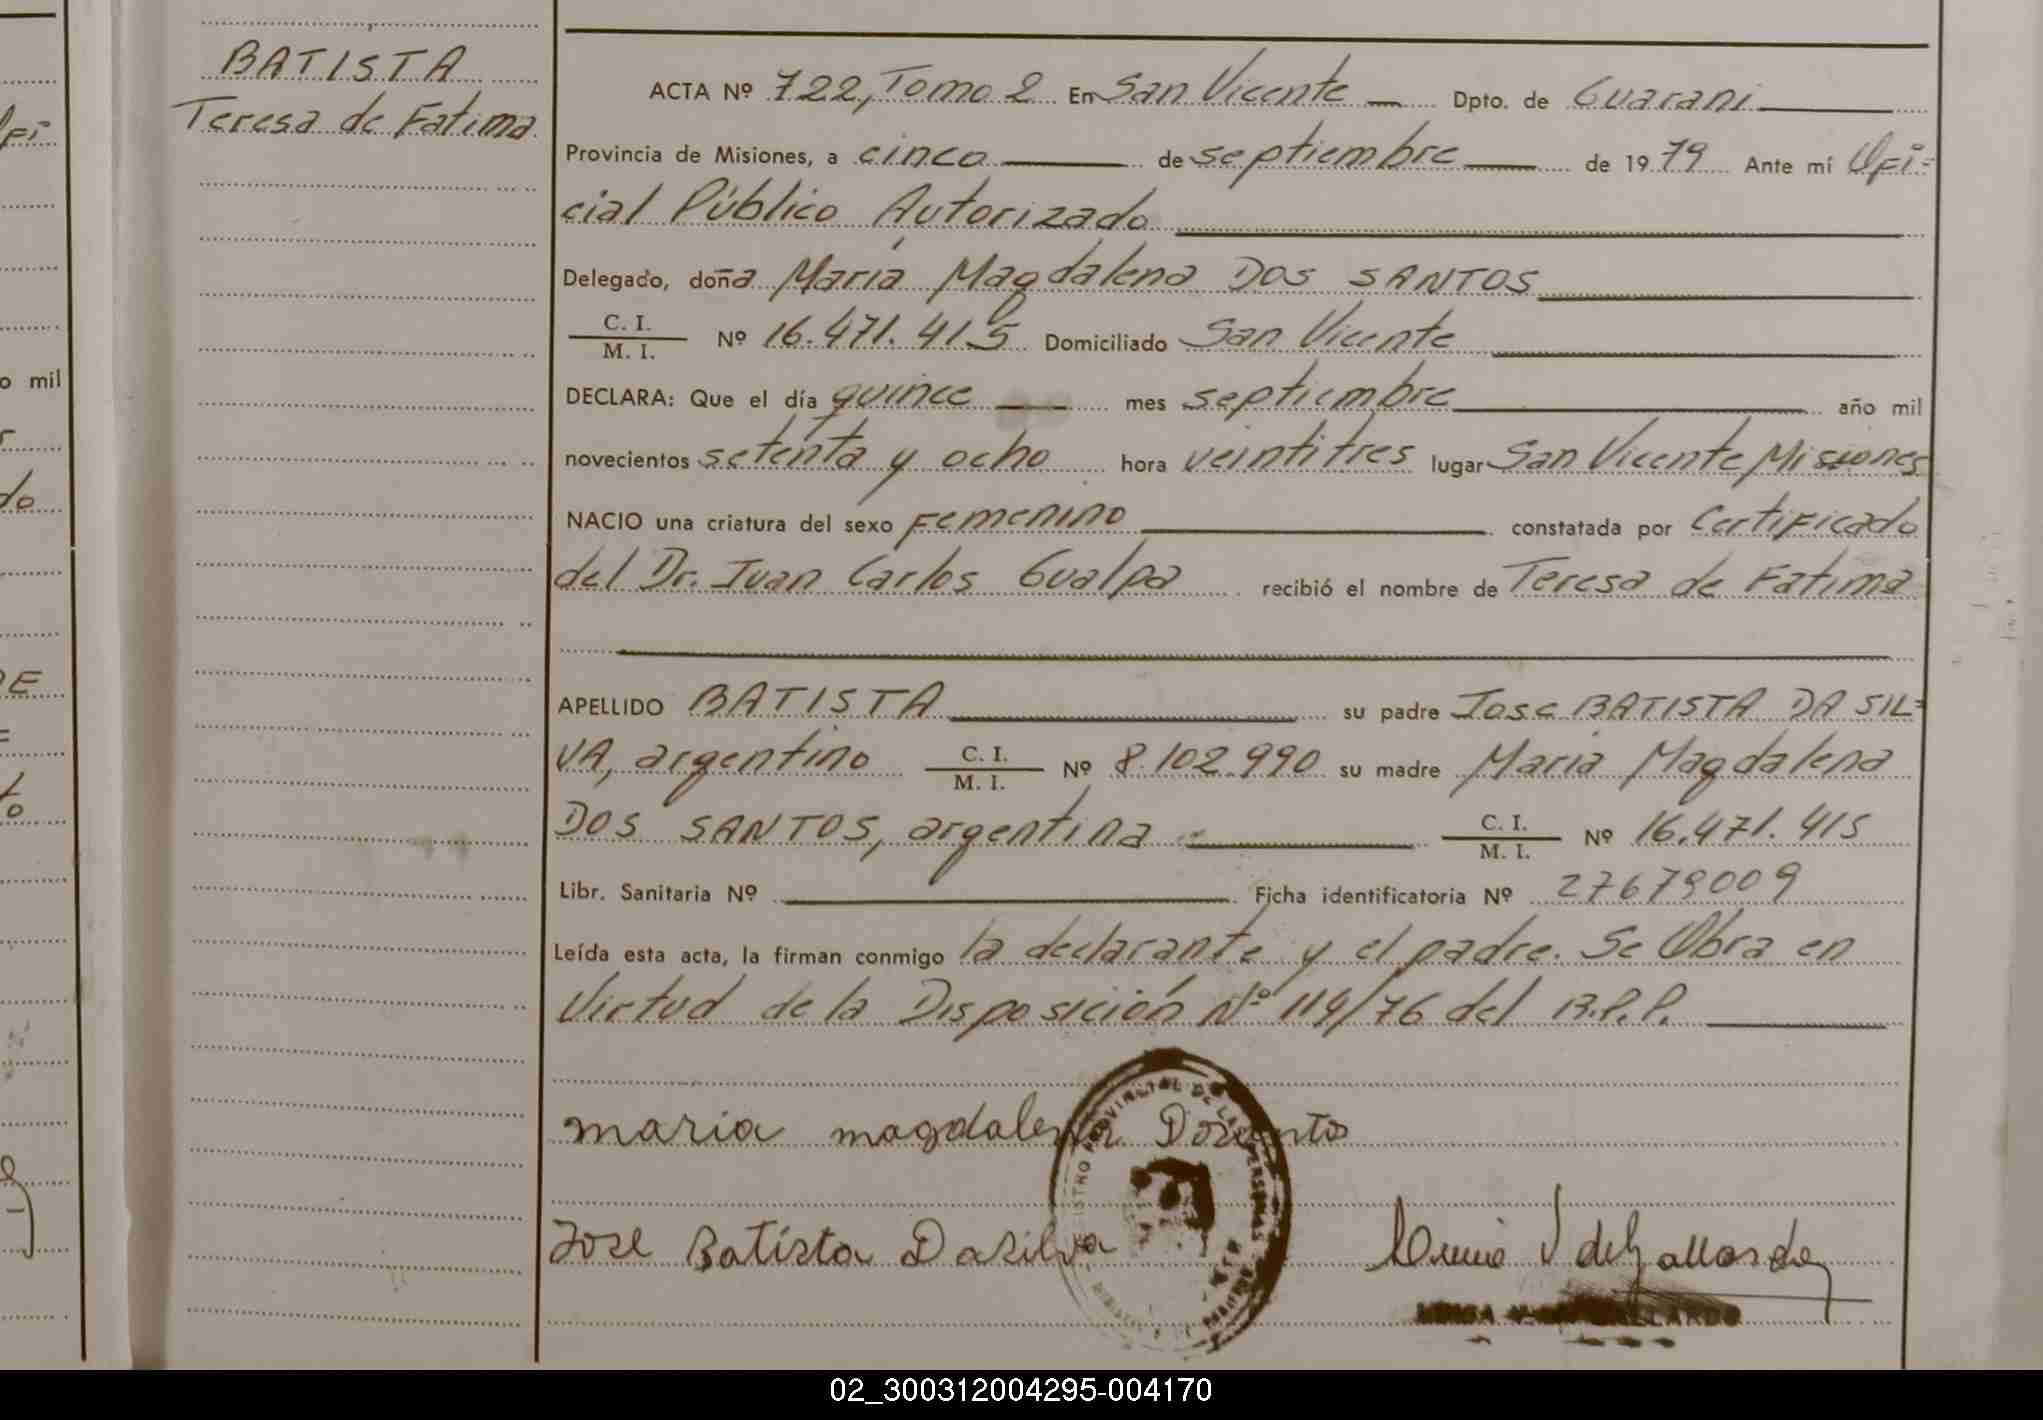 BATISTA
Teresa de Fatima
ACTA Nº 722, Tomo 2 En San Vicente Dpto. de Guarani
Provincia de Misiones, a cinco de septiembre de 1979 Ante mí Ofi=
cial Público Autorizado
Delegado, doña María Magdalena DOS SANTOS
C. I.
M. I. Nº 16.471.415 Domiciliado San Vicente
DECLARA: Que el día quince mes septiembre año mil
novecientos setenta y ocho hora veintitres lugar San Vicente Misiones
NACIO una criatura del sexo Femenino constatada por Certificado
del Dr. Juan Carlos Gualpa recibió el nombre de Teresa de Fatima
APELLIDO BATISTA su padre Jose BATISTA DA SIL=
VA, argentino C. I.
M. I. Nº 8.102.990 su madre Maria Magdalena
DOS SANTOS, argentina C. I.
M. I. Nº 16.471.415
Libr. Sanitaria Nº Ficha identificatoria Nº 27679009
Leída esta acta, la firman conmigo la declarante y el padre. Se Obra en
Virtud de la Disposición Nº 114/76 del R.P.P.
maria magdalena
REGISTRO PROVINCIAL DE LAS PERSONAS
Jose Batista Dasilva
GALLARDO
o mil
do
DE
to
02_300312004295-004170